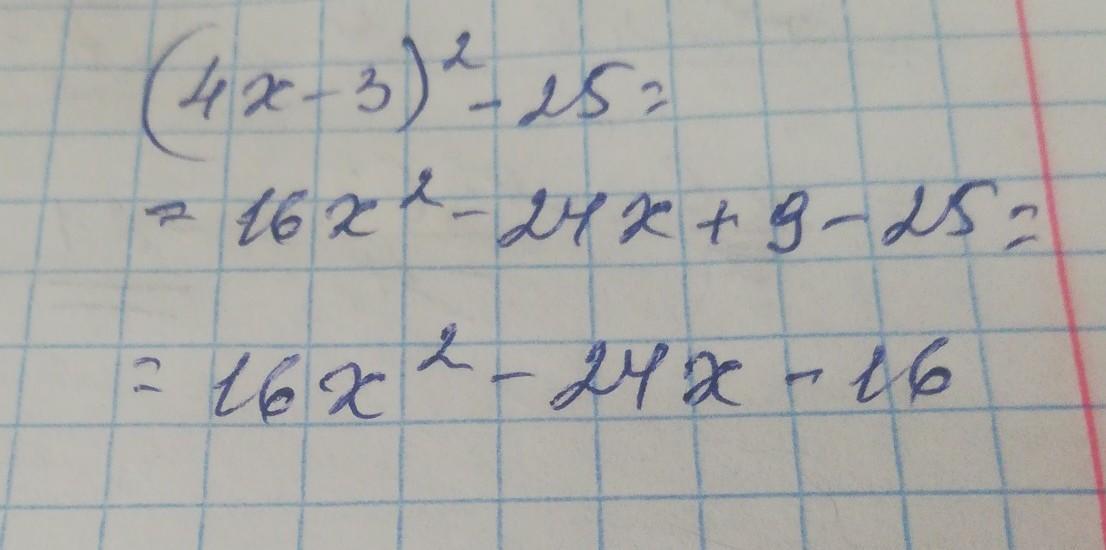 (4x-3)²-25=
=16x²-24x+9-25=
=16x²-24x-16